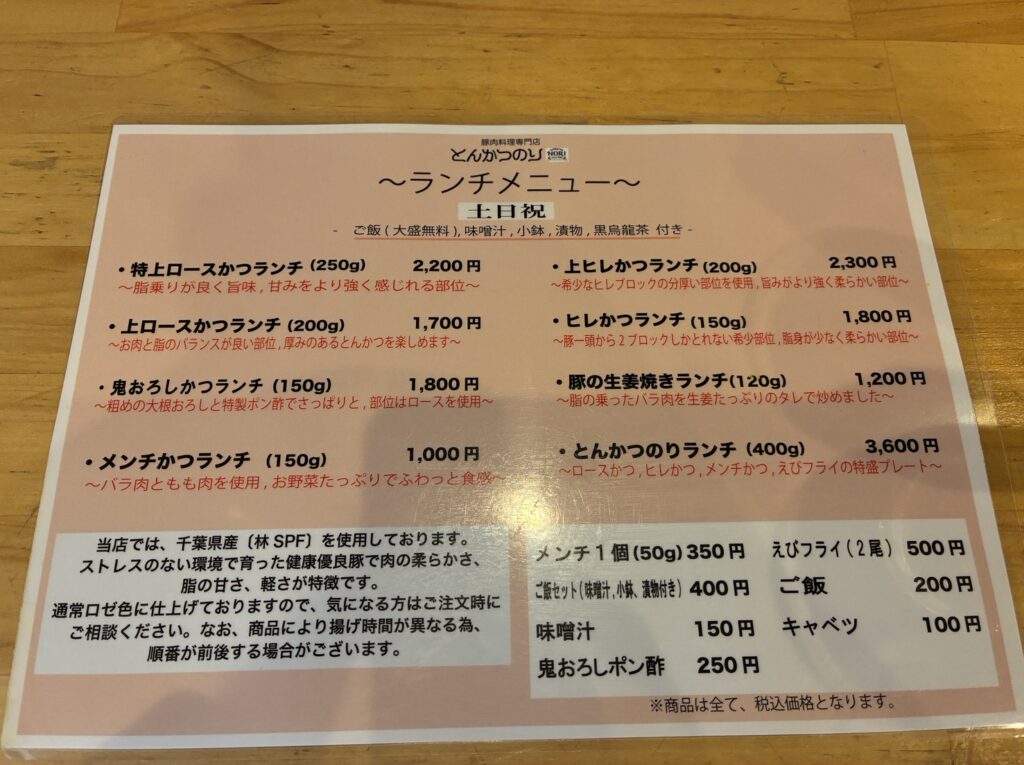 豚肉料理専門店
とんかつのり NORI
～ランチメニュー～
土日祝
- ご飯(大盛無料),味噌汁,小鉢,漬物,黒烏龍茶 付き -
・特上ロースかつランチ (250g) 2,200円
～脂乗りが良く旨味,甘みをより強く感じれる部位～
・上ロースかつランチ (200g) 1,700円
～お肉と脂のバランスが良い部位,厚みのあるとんかつを楽しめます～
・鬼おろしかつランチ (150g) 1,800円
～粗めの大根おろしと特製ポン酢でさっぱりと,部位はロースを使用～
・メンチかつランチ (150g) 1,000円
～バラ肉ともも肉を使用,お野菜たっぷりでふわっと食感～
・上ヒレかつランチ (200g) 2,300円
～希少なヒレブロックの分厚い部位を使用,旨みがより強く柔らかい部位～
・ヒレかつランチ (150g) 1,800円
～豚一頭から2ブロックしかとれない希少部位,脂身が少なく柔らかい部位～
・豚の生姜焼きランチ(120g) 1,200円
～脂の乗ったバラ肉を生姜たっぷりのタレで炒めました～
・とんかつのりランチ (400g) 3,600円
～ロースかつ,ヒレかつ,メンチかつ,えびフライの特盛プレート～
当店では、千葉県産〔林SPF〕を使用しております。
ストレスのない環境で育った健康優良豚で肉の柔らかさ、
脂の甘さ、軽さが特徴です。
通常ロゼ色に仕上げておりますので、気になる方はご注文時に
ご相談ください。なお、商品により揚げ時間が異なる為、
順番が前後する場合がございます。
メンチ1個(50g) 350円 えびフライ(2尾) 500円
ご飯セット(味噌汁,小鉢、漬物付き) 400円 ご飯 200円
味噌汁 150円 キャベツ 100円
鬼おろしポン酢 250円
※商品は全て、税込価格となります。